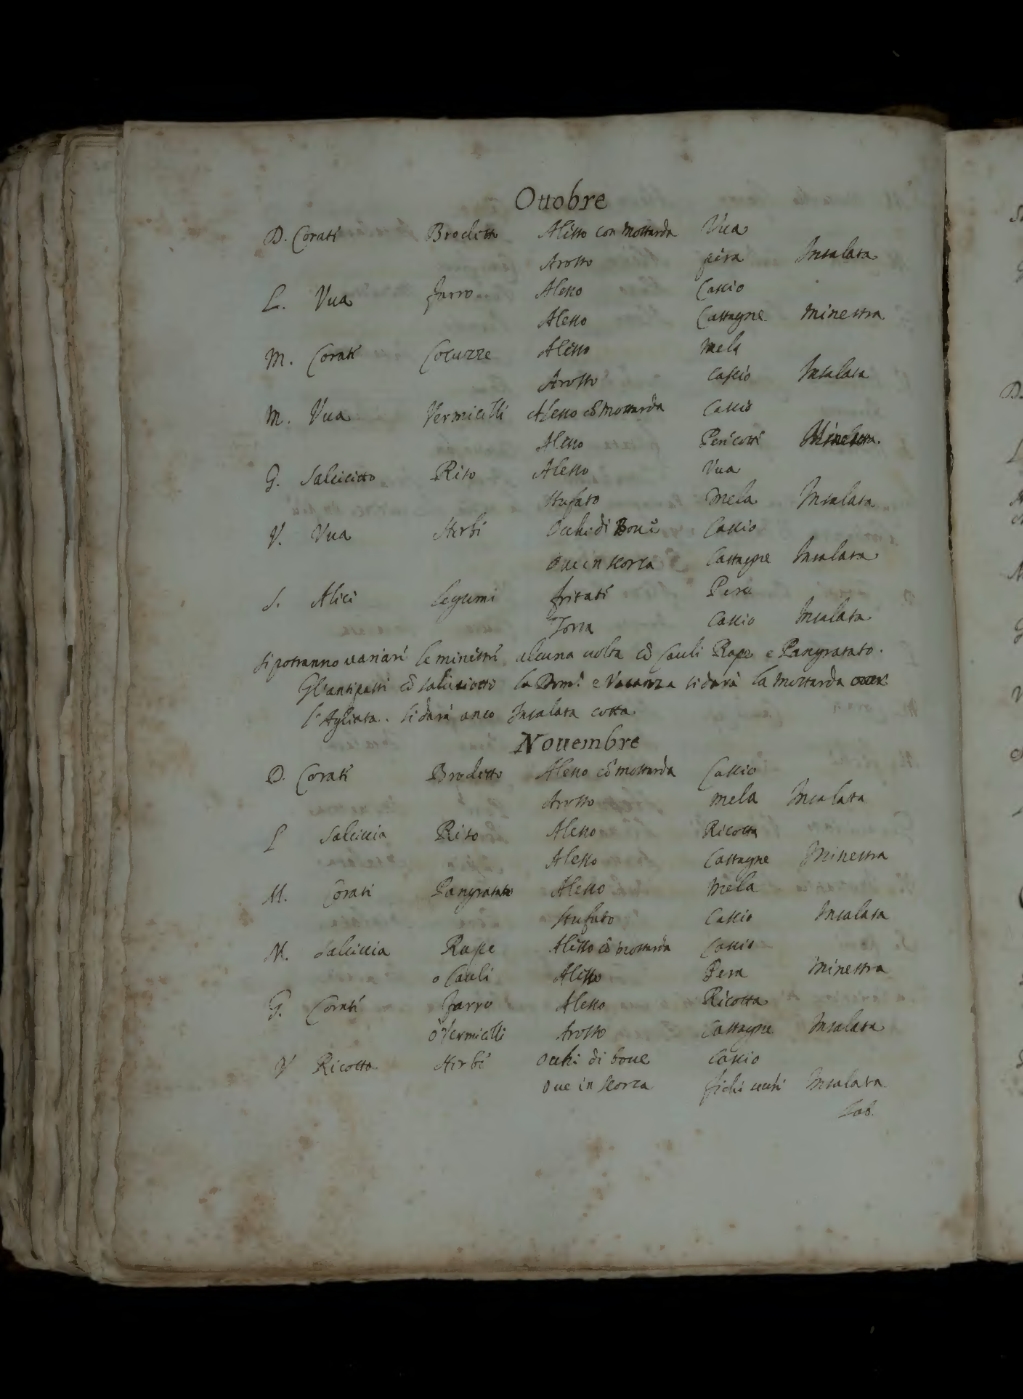 Ottobre
D. Corati Brodetto Alesso con mostarda Vua
Arosto pera Insalata
L. Vua farro Alesso Cascio
Alesso Castagne Minestra
M. Corati Cocuzze Alesso mela
Arosto cascio Insalata
M. Vua Vermicelli Alesso cõ mostarda Cascio
Alesso Minestra.
G. Salciciotto Riso Alesso Vua
stufato Mela Insalata
V. Vua Herbi Occhi di Boui Cascio
Oue in scorza Castagne Insalata
S. Alici legumi fritati Pera
Torta Cascio Insalata
si potranno uariari le ministri alcuna uolta cõ Cauli Rape e Pangratato.
Gl'antipasti cõ salciciotto la Dom.ª e Vacanza si darà la mostarda
l'Agliata. si darà anco Insalata cotta
Nouembre
D. Corati Brodetto Alesso cõ mostarda Cascio
Arosto mela Insalata
L Salciccia Riso Alesso Ricotta
Alesso Castagne Minestra
M. Corati Pangratato Alesso Mela
stufato Cascio Insalata
M. Salciccia Rape Alesso cõ mostarda Cascio
o Cauli Alesso Pera Minestra
G. Corati farro Alesso Ricotta
o Vermicelli Arosto Castagne Insalata
V Ricotta Hirbi Occhi di boue Cascio
Oue in scorza fichi Insalata
Sab.